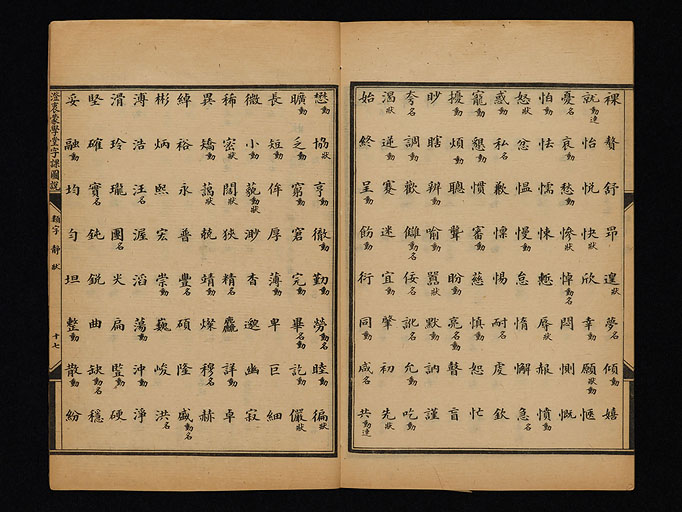 裸瞽舒昂遑狀夢名傾動嬉
就動連怡悦快狀欣幸動願狀動愜
憂名哀動愁動慘狀悼動名悶惻慨
怕怯懦悚慙辱狀赧憤動
怒狀忿愠慢動怠惰懈急名
惑動私名歉慄惕耐動虔欽
寵動懇動慣審動慈慎動恕忙
擾動煩動聰聾盼動亮動名瞽盲
眇瞎辨動喻動嚚狀默動訥謹
夸名調動歡讎動名佞名訛名允動吃動
渴狀蹇迷宜動肇初先狀
始終呈動飭動衍同動咸名共動連
懋動協狀亨動徹動勤動勞動名睦動徧狀
曠動乏動窮動窘完動畢動名訖動儼狀
長短動侔厚薄動卑巨細
微小動藐動狀渺杳邈幽寂
稀密狀闊狀狹精名麤詳卓
異矯動藹狀兢靖動燦穆名赫
綽裕永普豐名碩隆盛動名
彬炳熙宏崇動巍峻洪名
溥浩汪名渥滔蕩動沖動淨
滑玲瓏團名尖扁豎動硬
堅確實名鈍鋭曲缺動名穩
妥融動均匀坦整動散動紛
澄衷蒙學堂字課圖說 類字 靜 狀 十七